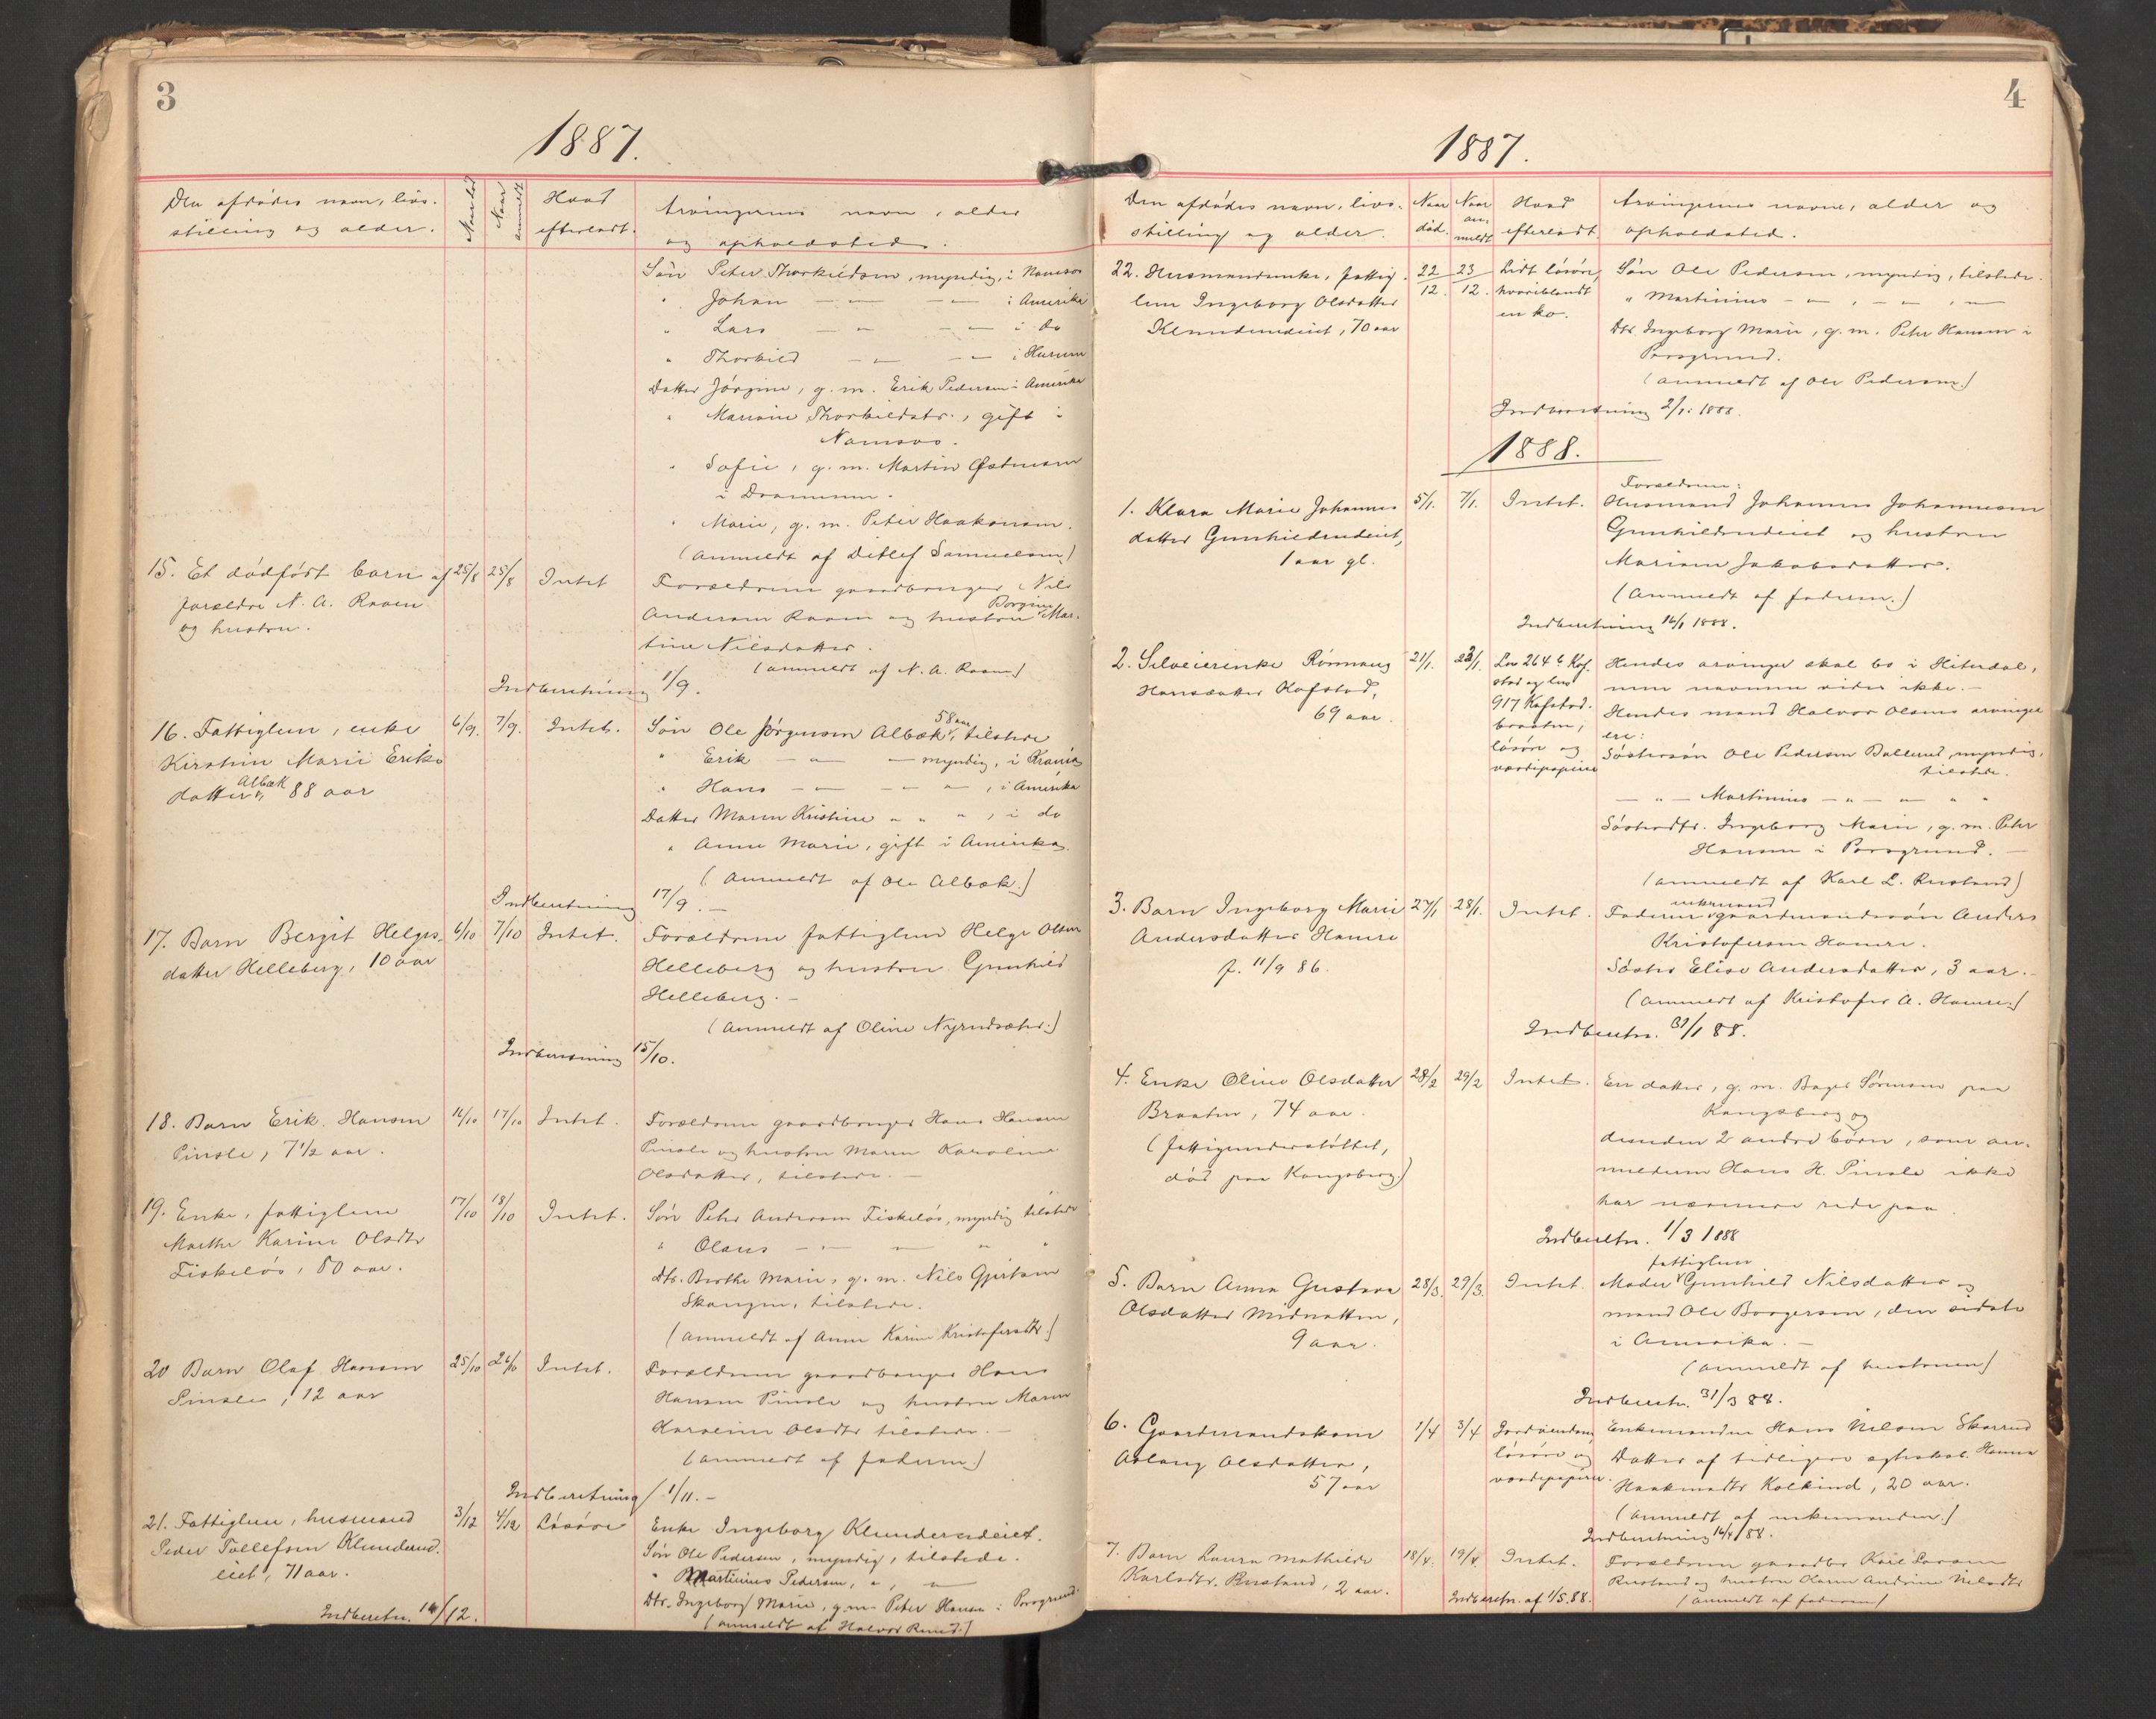 3
1887.
Den afdødes navn, livs-
stilling og alder.
Naar død
Naar anmeldt
Hvad
efterladt.
Arvingernes navn, alder
og opholdssted.
Søn Peter Thorkildsen, myndig, i Namsos
" Johan — " — — " — i Amerika
" Lars — " — — " — i do
" Thorkild — " — — " — i Hurum
Datter Jørgine, g. m. Erik Pedersen i Amerika
" Thorkildsdtr., gift i
Namsos.
" Sofie, g. m. Martin Østensen
i Drammen.
" Marie, g. m. Peter Haakonsen.
(Anmeldt af Ditlef Samuelsen)
15. Et dødfødt barn af 25/8 25/8 Intet Forældrene gaardbruger Nils
forældre N. A. Raaen Andersen Raaen og hustru Borgine Mar-
og hustru. tine Nilsdatter.
(anmeldt af N. A. Raaen)
Indberetning 1/9.
16. Fattiglem, enke 6/9. 7/9. Intet. Søn Ole Jørgensen Albæk, 58 aar, tilstede
Kirstine Marie Eriks- " Erik — " — — myndig, i Krania
datter Albæk, 88 aar " Hans — " — — " — , i Amerika
Datter Maren Kristine " " " , i do
" Anne Marie, gift i Amerika.
(Anmeldt af Ole Albæk.)
Indberetning 17/9. —
17. Barn Bergit Helges- 6/10 7/10 Intet. Forældrene fattiglem Helge Olsen
datter Helleberg, 10 aar Helleberg og hustru Gunhild
Helleberg. —
(Anmeldt af Oline Nyrudsæter.)
Indberetning 15/10.
18. Barn Erik Hansen 16/10 17/10 Intet. Forældrene gaardbruger Hans Hansen
Pinsle, 7 1/2 aar. Pinsle og hustru Maren Karoline
Olsdatter, tilstede. —
19. Enke, fattiglem 17/10 18/10 Intet. Søn Peter Andersen Fiskeløs, myndig tilstede
Marthe Karine Olsdtr " Olaus — " — " — " "
Fiskeløs, 80 aar. Dtr. Berthe Marie, g. m. Nils Gjertsen
Skangen, tilstede.
(Anmeldt af Anne Karine Kristofersdtr.)
20 Barn Olaf Hansen 25/10 26/10 Intet. Forældrene gaardbruger Hans
Pinsle, 12 aar Hansen Pinsle og hustru Maren
Karoline Olsdtr tilstede. —
(anmeldt af faderen.)
Indberetning 1/11. —
21. Fattiglem, husmand 3/12 4/12 Løsøre Enke Ingeborg Klunderudeiet.
Peder Tollefsen Klunderud- Søn Ole Pedersen, myndig, tilstede.
eiet, 71 aar. " Martinius Pedersen, " , "
Dtr. Ingeborg Marie, g. m. Peter Hansen i Porsgrund.
Indberetn. 14/12. (anmeldt af Halvor Rud.)
4
1887.
Den afdødes navn, livs-
stilling og alder.
Naar
død.
Naar
an-
meldt
Hvad
efterladt
Arvingernes navne, alder og
opholdssted.
22. Husmandsenke, fattig- 22/12. 23/12. Lidt løsøre, Søn Ole Pedersen, myndig, tilstede.
lem Ingeborg Olsdatter hvoriblandt " Martinius — " — , — " — , "
Klunderudeiet, 70 aar en ko. Dtr. Ingeborg Marie, g. m. Peter Hansen i
Porsgrund.
(anmeldt af Ole Pedersen.)
Indberetning 2/1 1888.
1888.
Forældrene:
1. Klara Marie Johannes- 5/1. 7/1. Intet. Husmand Johannes Johannesen
datter Gunhildrudeiet, Gunhildrudeiet og hustru
1 aar gl. Mariane Jakobsdatter.
(Anmeldt af faderen.)
Indberetning 16/1 1888.
2. Selveierenke Rønnaug 21/1. 23/1. Løv 264 b Kof- Hendes arvinger skal bo i Hiterdal,
Hansdatter Kofstad, stad og løv men navnene vides ikke. —
69 aar. 917 Kofstad- Hendes mand Halvor Olsens arvinger
braaten, ere:
løsøre og Søstersøn Ole Pedersen Bollerud, myndig,
værdipapirer tilstede.
— " — Martinius — " — " — " "
Søsterdtr. Ingeborg Marie, g. m. Peter
Hansen i Porsgrund. —
(anmeldt af Karl L. Rustand)
3. Barn Ingeborg Marie 27/1 28/1. Intet. Faderen enkemand gaardmandssøn Anders
Andersdatter Hamre Kristofersen Hamre.
f. 11/9 86. Søster Elise Andersdatter, 3 aar. —
(anmeldt af Kristofer A. Hamre.)
Indberetn. 31/1 88.
4. Enke Oline Olsdatter 28/2 29/2 Intet. En datter, g. m. Bager Sørensen paa
Braaten, 74 aar. Kongsberg og
(fattigunderstøttet, desuden 2 andre børn, som an-
død paa Kongsberg.) melderen Hans H. Pinsle ikke
har nærmere rede paa.
Indberetn. 1/3 1888
5. Barn Anna Gustava 28/3. 29/3. Intet. Moder fattiglem Gunhild Nilsdatter og
Olsdatter Midnatten, mand Ole Borgersen, den sidste
9 aar. i Amerika. —
(anmeldt af hustruen)
Indberetn. 31/3 88.
6. Gaardmandskone 1/4 3/4 Jordeiendom, Enkemanden Hans Nilsen Skarrud
Aslaug Olsdatter, løsøre og Datter af tidligere ægteskab Hanna
57 aar værdipapirer. Haakensdtr Kolkind, 20 aar.
(anmeldt af enkemanden.)
Indberetning 16/4 88.
7. Barn Laura Mathilde 18/4. 19/4. Intet. Forældrene gaardbr Karl Larsen
Karlsdtr. Rustand, 2 aar. Rustand og hustru Karen Andrine Nilsdtr
Indberetn. af 1/5. 88. (anmeldt af faderen)